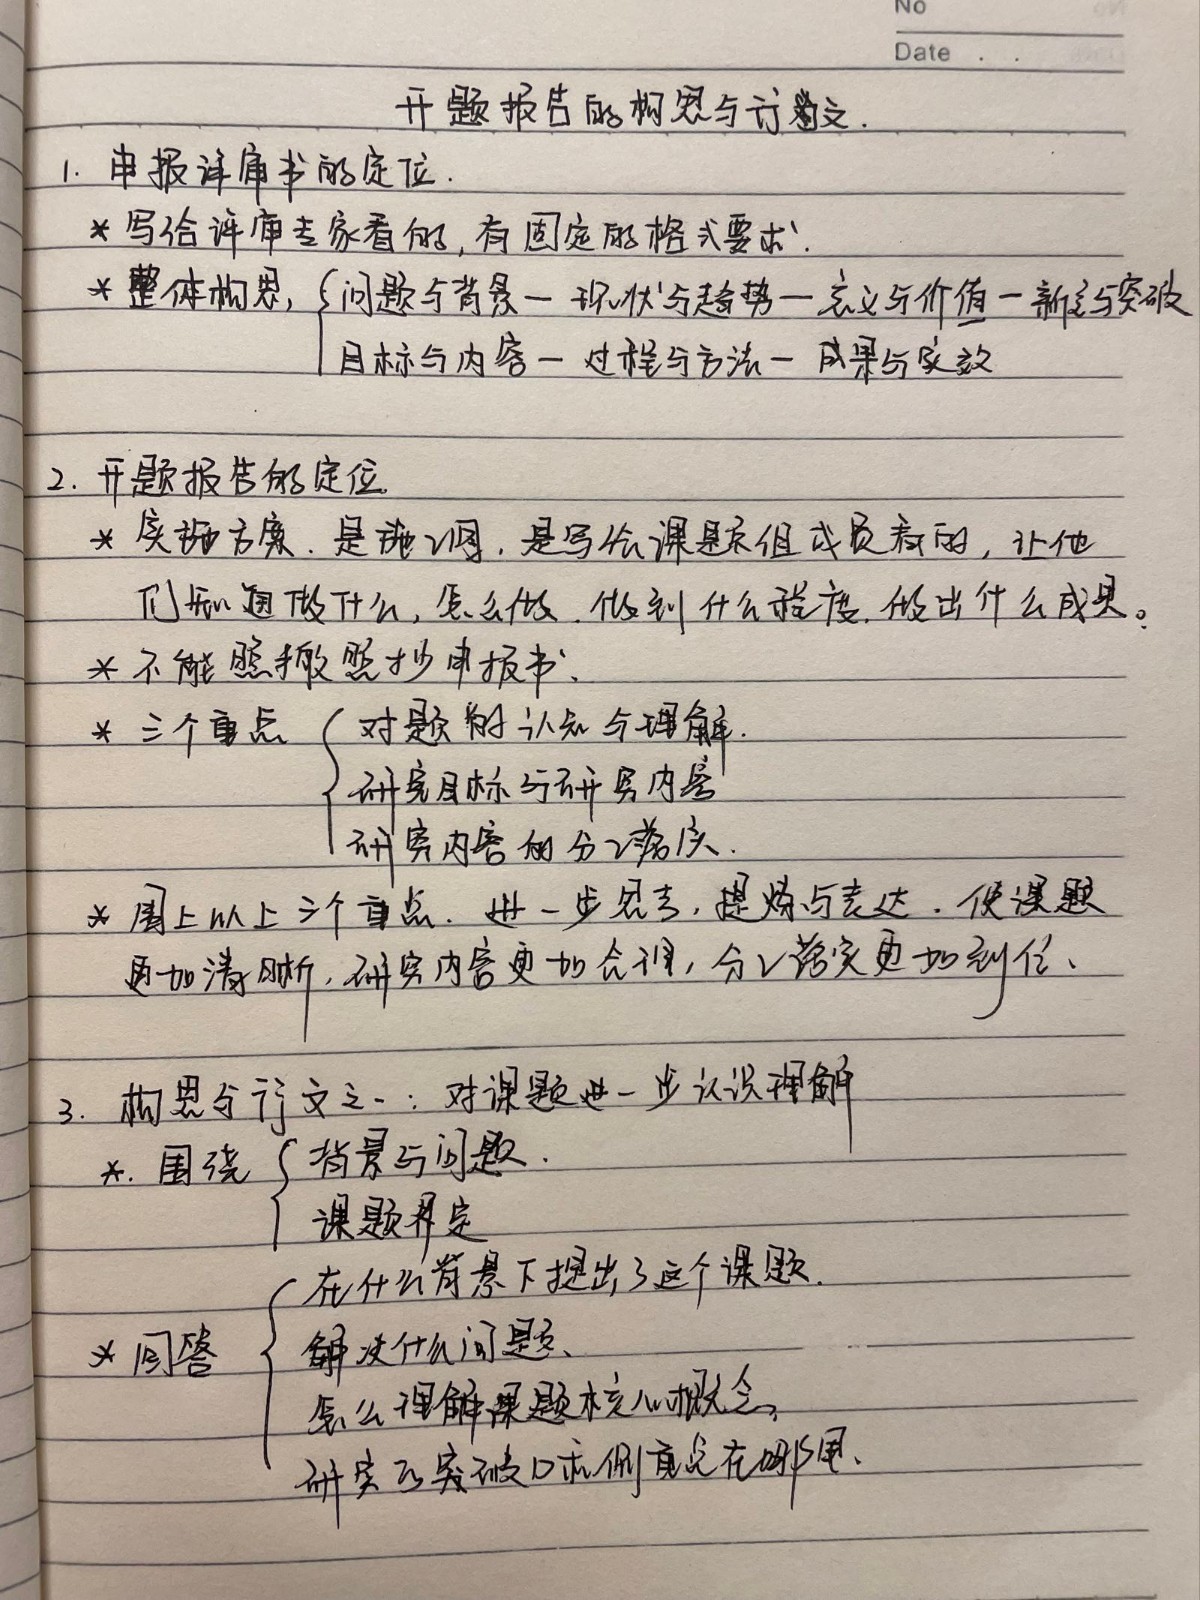 No
Date . .
开题报告的构思与行文.
1. 申报评审书的定位.
* 写给评审专家看的,有固定的格式要求.
* 整体构思, 问题与背景—现状与趋势—意义与价值—新意与突破
目标与内容—过程与方法—成果与实效
2. 开题报告的定位
* 实施方案.是施工图.是写给课题组成员看的,让他
们知道做什么,怎么做.做到什么程度.做出什么成果。
* 不能照搬照抄申报书.
* 三个重点 对题的认知与理解.
研究目标与研究内容
研究内容的分工落实.
* 围上以上三个重点.进一步思考,提炼与表达.使课题
更加清晰,研究内容更加合理,分工落实更加到位.
3. 构思与行文之一:对课题进一步认识理解
*. 围绕 背景与问题.
课题界定
在什么背景下提出了这个课题.
* 回答 解决什么问题.
怎么理解课题核心概念,
研究的突破口和侧重点在哪里.